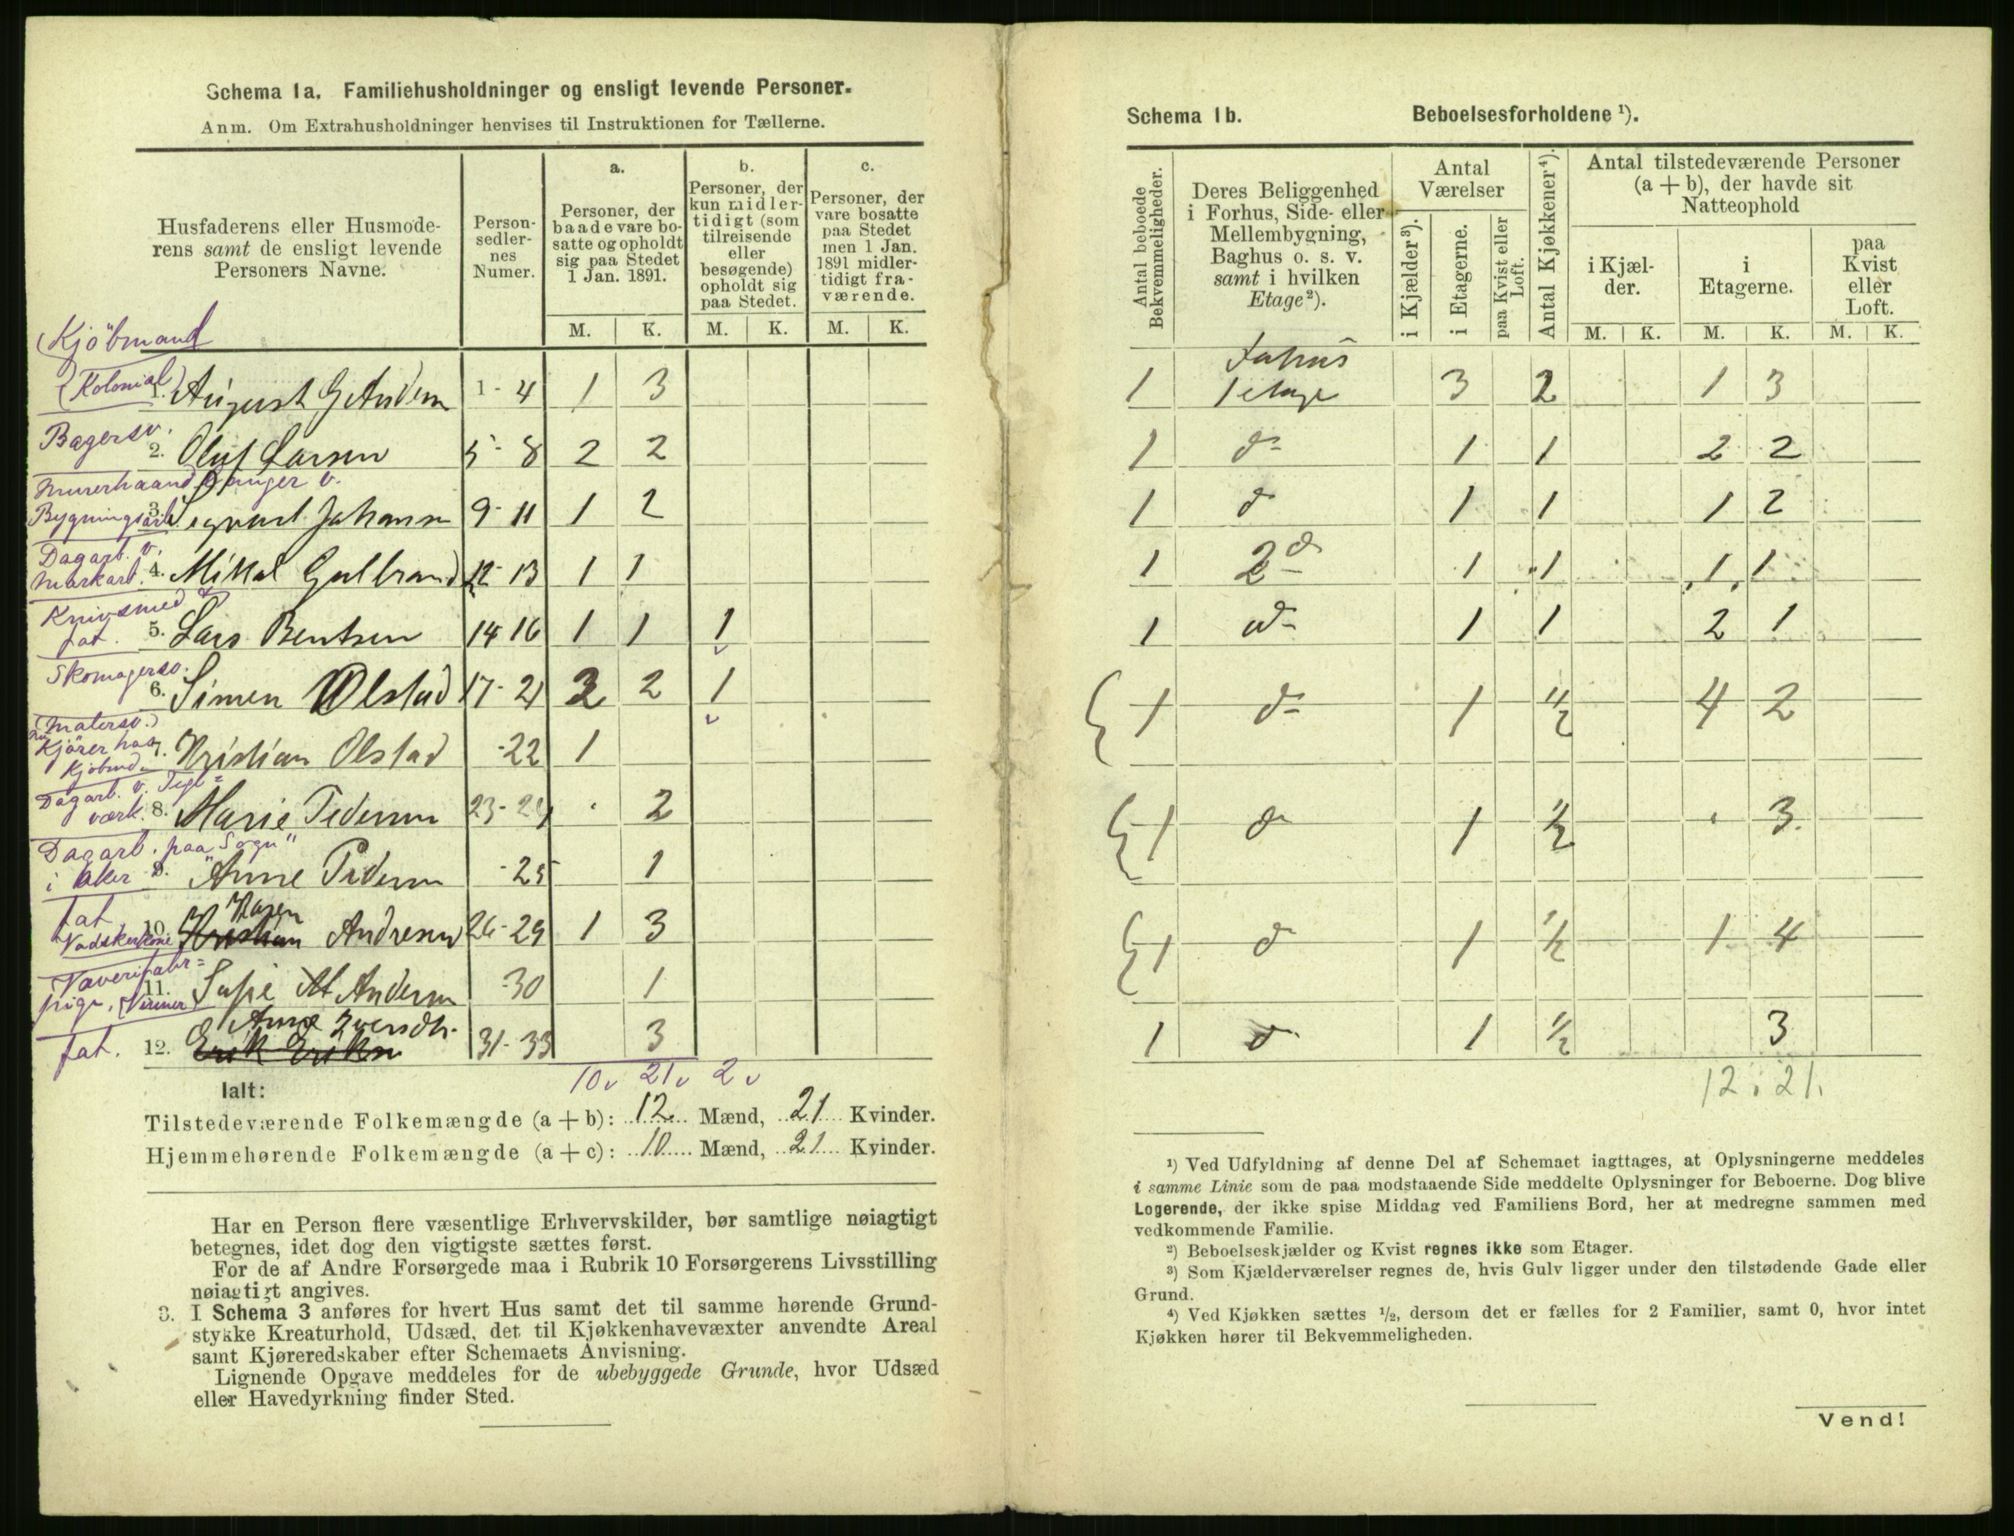 Schema 1a. Familiehusholdninger og ensligt levende Personer.
Anm. Om Extrahusholdninger henvises til Instruktionen for Tællerne.
Husfaderens eller Husmoderens samt de ensligt levende Personers Navne.
Personsedlernes Numer.
a. Personer, der baade vare bosatte og opholdt sig paa Stedet 1 Jan. 1891.
b. Personer, der kun midlertidigt (som tilreisende eller besøgende) opholdt sig paa Stedet.
c. Personer, der vare bosatte paa Stedet men 1 Jan. 1891 midlertidigt fraværende.
M. K. M. K. M. K.
Kjöbmand
(Kolonial) 1. August G Andersen 1-4 1 3
Bagersv. 2. Oluf Larsen 5-8 2 2
Murerhaandlanger v.
Bygningsarb 3. Sigvart Johansen 9-11 1 2
Dagarb. v.
Markarb. 4. Mikkal Gulbrand 12-13 1 1
Knivsmed
fat. 5. Lars Bentsen 14 16 1 1 1
Skomagersv. 6. Simen Olstad 17-21 3 2 1
(Malersv.)
Kjörer hos
Kjöbmd. 7. Kristian Olstad -22 1
Dagarb. v. Tegl=
værk. 8. Marie Pedersen 23-24 · 2
Dagarb. paa "Sogn"
i Aker 9. Anne Pedersen -25 1
fat.
Vadskerkone 10. Karen Andresen 26-29 1 3
Væverifabr=
pige. 11. Sofie M Andersen -30 1
fat. 12. Anne Iversdtr. 31-33 3
Erik Eriksen
10 21 2
Ialt:
Tilstedeværende Folkemængde (a + b): 12 Mænd, 21 Kvinder.
Hjemmehørende Folkemængde (a + c): 10 Mænd, 21 Kvinder.
Har en Person flere væsentlige Erhvervskilder, bør samtlige nøiagtigt
betegnes, idet dog den vigtigste sættes først.
For de af Andre Forsørgede maa i Rubrik 10 Forsørgerens Livsstilling
nøiagtigt angives.
3. I Schema 3 anføres for hvert Hus samt det til samme hørende Grund-
stykke Kreaturhold, Udsæd, det til Kjøkkenhavevæxter anvendte Areal
samt Kjøreredskaber efter Schemaets Anvisning.
Lignende Opgave meddeles for de ubebyggede Grunde, hvor Udsæd
eller Havedyrkning finder Sted.
Schema 1b. Beboelsesforholdene ¹).
Antal beboede Bekvemmeligheder.
Deres Beliggenhed i Forhus, Side- eller Mellembygning, Baghus o. s. v. samt i hvilken Etage ²).
Antal Værelser
i Kjælder ³).
i Etagerne.
paa Kvist eller Loft.
Antal Kjøkkener ⁴).
Antal tilstedeværende Personer (a + b), der havde sit Natteophold
i Kjælder.
i Etagerne.
paa Kvist eller Loft.
M. K. M. K. M. K.
1 Forhus 1 etage 3 2 1 3
1 do 1 1 2 2
1 do 1 1 1 2
1 2 do 1 1 1 1
1 do 1 1 2 1
1 do 1 ½ 4 2
1 do 1 ½ · 3
1 do 1 ½ 1 4
1 do 1 ½ 3
12 21
¹) Ved Udfyldning af denne Del af Schemaet iagttages, at Oplysningerne meddeles
i samme Linie som de paa modstaaende Side meddelte Oplysninger for Beboerne. Dog blive
Logerende, der ikke spise Middag ved Familiens Bord, her at medregne sammen med
vedkommende Familie.
²) Beboelseskjælder og Kvist regnes ikke som Etager.
³) Som Kjælderværelser regnes de, hvis Gulv ligger under den tilstødende Gade eller
Grund.
⁴) Ved Kjøkken sættes ¹/₂, dersom det er fælles for 2 Familier, samt 0, hvor intet
Kjøkken hører til Bekvemmeligheden.
Vend!